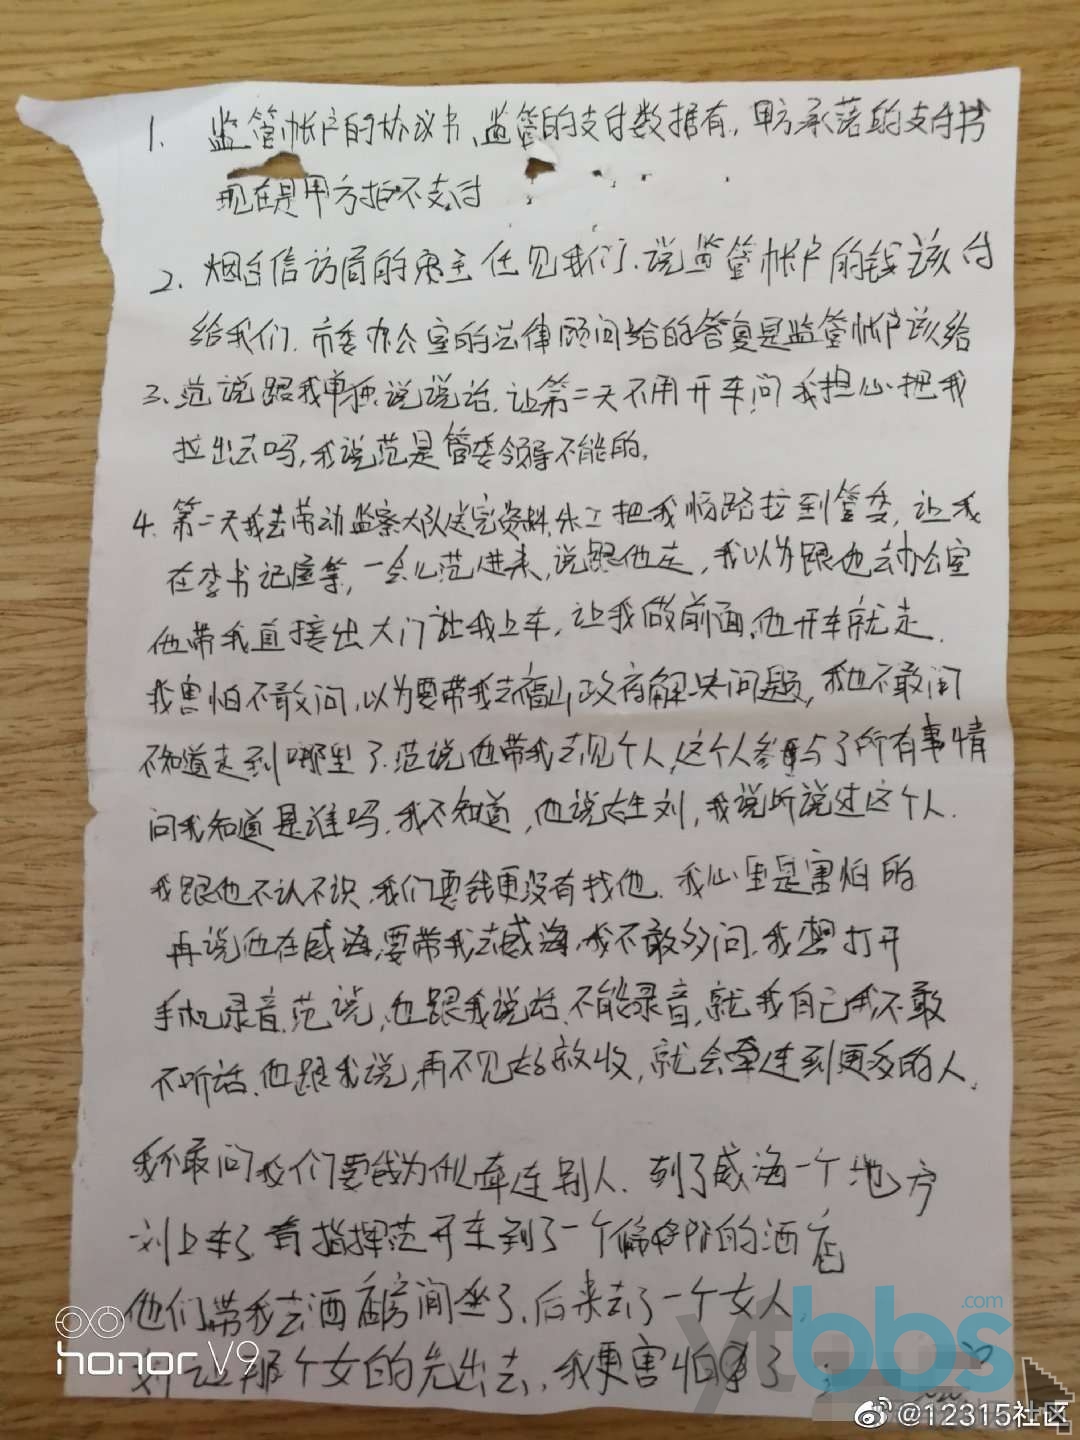 1. 监管帐户的协议书、监管的支付数据有,甲方承诺的支付书
现在是甲方拒不支付
2. 烟台信访局的 主任见我们.说监管帐户的钱该付
给我们.市委办公室的法律顾问给的答复是监管帐户该给
3. 范说跟我单独说说话.让第二天不用开车,问我担心把我
拉出去吗,我说范是管委领导不能的.
4. 第二天我去劳动监察大队送完资料, 把我 路拉到管委,让我
在李书记屋等,一会儿范进来,说跟他走,我以为跟他去办公室
他带我直接出大门让我上车,让我做前面,他开车就走.
我害怕不敢问,以为要带我去福山政府解决问题,我也不敢问
不知道走到哪里了.范说他带我去见个人,这个人参与了所有事情
问我知道是谁吗.我不知道,他说 刘,我说听说过这个人.
我跟他不认不识.我们要钱更没有找他.我心里是害怕的
再说他在威海,要带我去威海,我不敢多问.我想打开
手机录音.范说,他跟我说话.不能录音,就我自己我不敢
不听话.他跟我说,再不见好就收,就会牵连到更多的人.
我不敢问我们要钱为什么牵连别人.到了威海一个地方
刘上车了 指挥范开车到了一个偏僻 的酒店
他们带我去酒店房间坐了.后来去了一个女人.
刘 那个女的先出去.我更害怕 了
honor V9
ytbbs.com
@12315社区